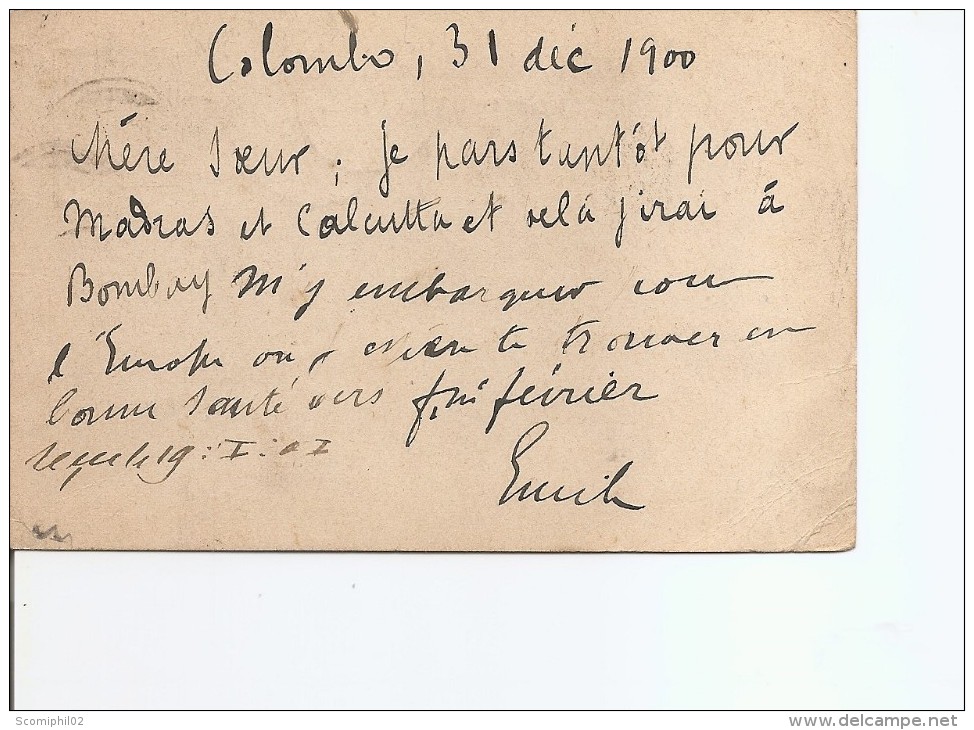 Colombo, 31 déc 1900
Chère Sœur ; je pars tantôt pour
Madras et Calcutta et de là j'irai à
Bombay m'y embarquer pour
l'Europe où j' te trouver en
bonne santé vers fin février
reçu le 19 : I : 01
Emile
Scomiphil02
www.delcampe.net